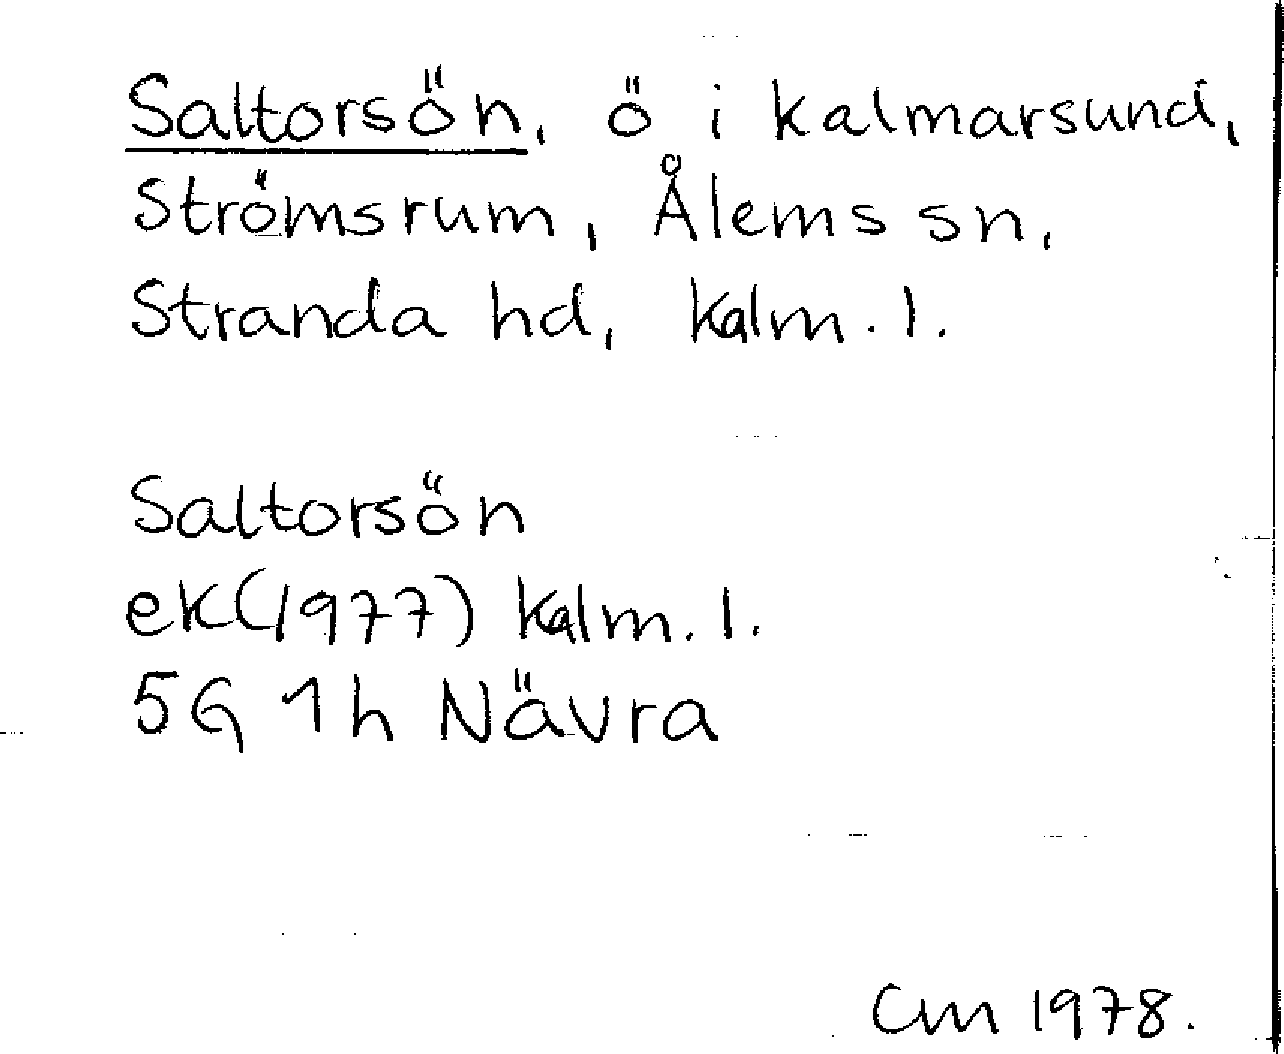 Saltorsön, ö i Kalmarsund,
Strömsrum, Ålems sn,
Stranda hd, Kalm. l.
Saltorsön
ek(1977) Kalm. l.
5G 1h Nävra
CM 1978.